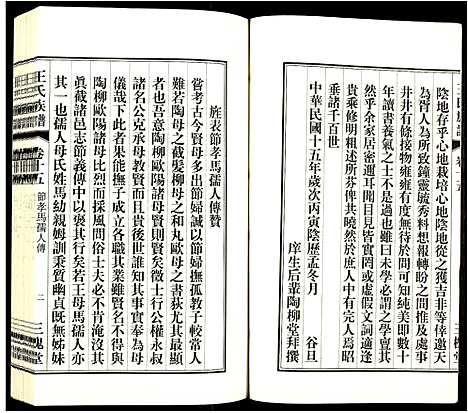 王氏族譜
卷十五
陰地存乎心地栽培心地陰地從之獲吉非等倖邀天
為胥人為所致鐘靈毓秀料想報轉盼之間推及處事
井井有條持己接物庸中佼佼前程何可訪知純美即十
年讀書養氣之士不是過也雖不獲躬膺
然乎余家居密邇耳聞目見皆實罔或虛假文詞適逢
貴乘修明良非偶然於庶人中有完人焉為昭
垂諸百世
中華民國十五年歲次丙寅陰歷孟冬月 穀旦
庠生后輩陶柳堂拜撰
旌表節孝馬孺人傳贊
嘗考古今賢母多出節婦誠以節婦撫孤教子較常人
難若陶母之截髮柳母之和丸歐母之書荻尤其最顯
者也吾意陶柳歐陽諸母賢則賢矣微士行公權永叔
諸名公克承母教賢而且貴後世誰知其事實奉為母
儀哉下此者果能撫子成立各職其業雖賢名不得與
陶柳歐陽諸母比烈而採風問俗士夫必不肯淹沒其
眞截諸邑志節義傳中以褒其行矣若王母馬孺人者
其一也孺人母氏姓馬幼親姆訓秉質幽貞既無姊妹
王氏族譜
卷十五
節孝馬孺人傳
二
三槐堂